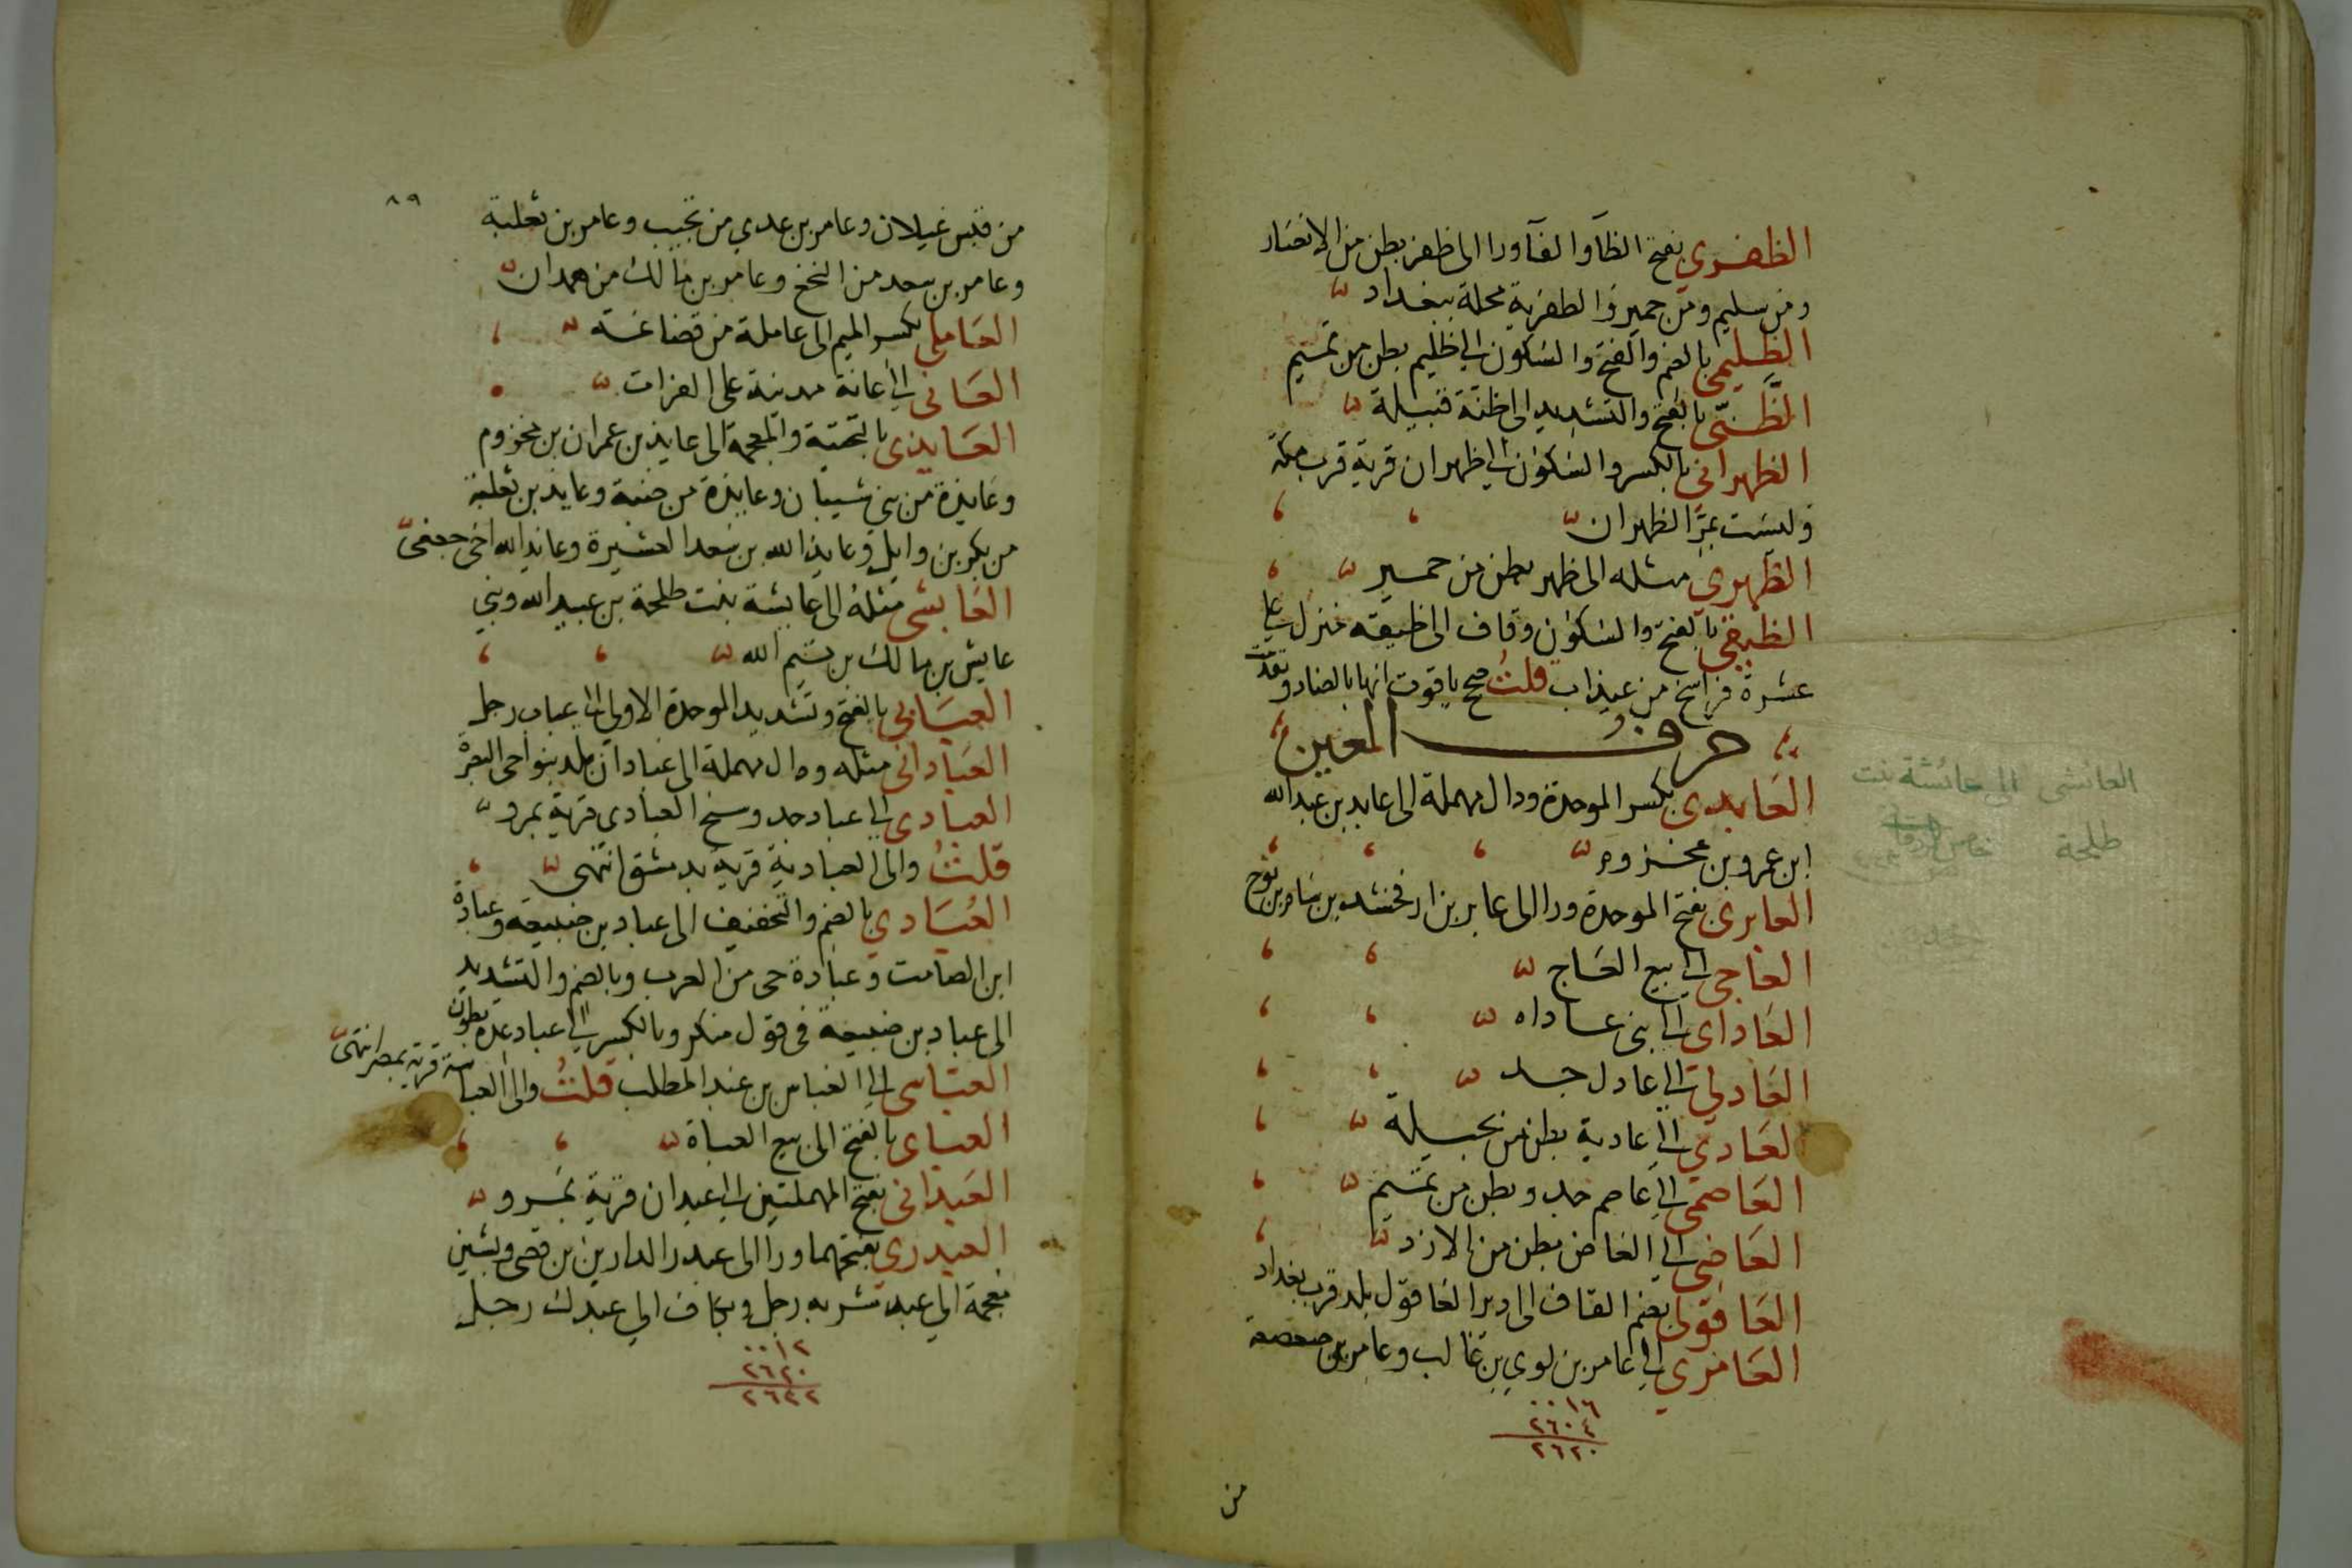 الظفري بفتح الظا والفا ورا الى ظفر بطن من الانصار
ومن سليم ومن حمير والظفرية محلة ببغداد
الظليمي بالضم والفتح والسكون الى ظليم بطن من تميم
الظني بالفتح والتشديد الى ظنة قبيلة
الظهراني بالكسر والسكون الى ظهران قرية قرب مكة
وليست بمر الظهران
الظهري مثله الى ظهر بطن من حمير
الظيقي بالفتح والسكون وقاف الى ظيقه منزل على
عشرة فراسخ من عيذاب قلت صحح ياقوت انها بالضاد
حرف العين
العابدي بكسر الموحدة ودال مهملة الى عابد بن عبد الله
ابن عمرو بن مخزوم
العابري بفتح الموحدة ورا الى عابر بن ارفخشد بن سام بن نوح
العاجي الى بيع العاج
العاداى الى بنى عاداه
العادلي الى عادل جد
العادي الى عادية بطن من بجيلة
العاصمي الى عاصم جد وبطن من تميم
العاضي الى العاض بطن من الازد
العاقولي بضم القاف الى دير العاقول بلد قرب بغداد
العامري الى عامر بن لوي بن غالب وعامر بن صعصعة
٠٠١٦
٢٦٠٤
٢٦٢٠
من
العائشى الى عائشة بنت
طلحة
٨٩
من قيس غيلان وعامر بن عدي من تجيب وعامر بن ثعلبة
وعامر بن سعد من النخع وعامر بن مالك من همدان
العاملي بكسر الميم الى عاملة من قضاعة
العانى الى عانة مدينة على الفرات
العايذى بالتحتية والمعجمة الى عايذ بن عمران بن مخزوم
وعايذة من بني شيبان وعايذة من ضبة وعايذ بن ثعلبة
من بكر بن وايل وعايذ الله بن سعد العشيرة وعايذ الله اخى جعفى
العايشى مثله الى عايشة بنت طلحة بن عبيد الله وبني
عايش بن مالك بن تيم الله
العبابي بالفتح وتشديد الموحدة الاولى الى عباب رجل
العبادانى مثله ودال مهملة الى عبادان بلد بنواحى البصرة
العبادى الى عباد جد وسنج العبادى قرية بمرو
قلت والى العبادية قرية بدمشق انتهى
العبادي بالضم والتخفيف الى عباد بن ضبيعة وعبادة
ابن الصامت وعبادة حى من العرب وبالضم والتشديد
الى عباد بن ضبيعة في قول منكر وبالكسر الى عباد عدة بطون
العباسى الى العباس بن عبد المطلب قلت والى العباسة قرية بمصر انتهى
العباى بالفتح الى بيع العباة
العبدانى بفتح المهملتين الى عبدان قرية بمرو
العبدري بفتحهما ورا الى عبد الدار بن قصى وبشين
معجمة الي عبد شر به رجل وبكاف الي عبدك رجل
٠٠١٢
٢٦٢٠
٢٦٣٢